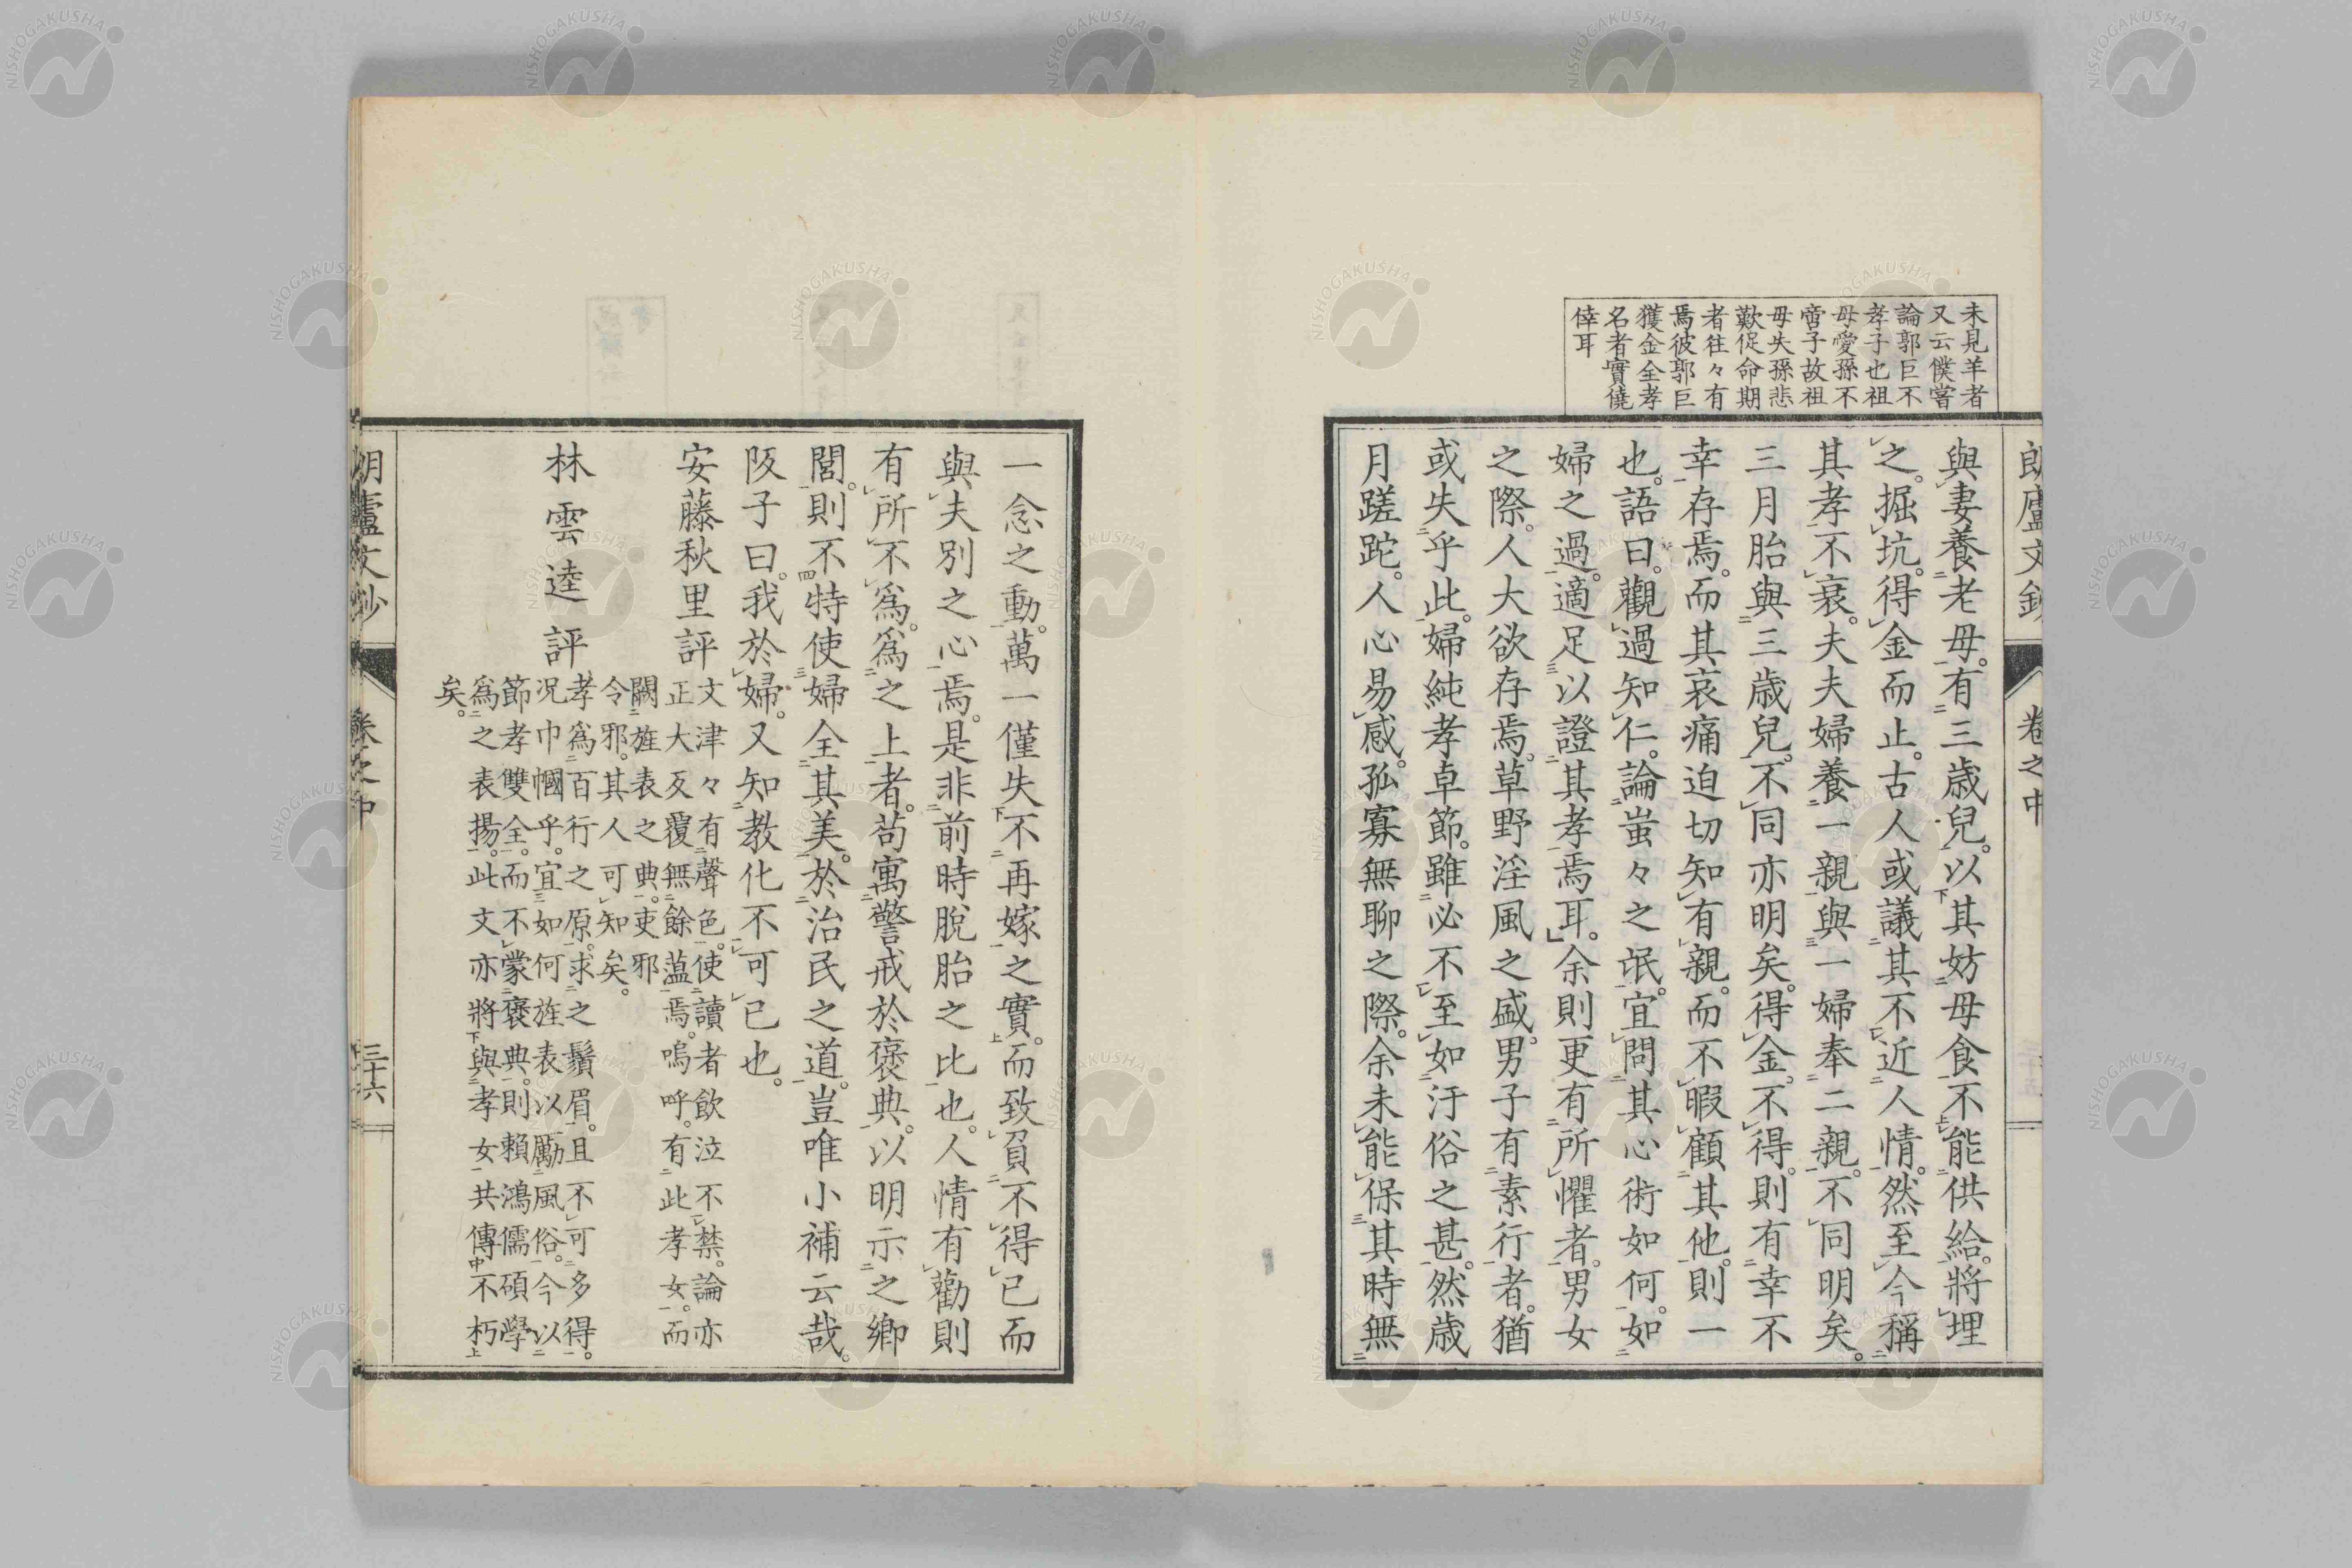 未見羊者
又云僕嘗
論郭巨不
孝子也祖
母愛孫不
啻子故祖
母失孫悲
歎促命期
者往々有
焉彼郭巨
獲金全孝
名者實僥
倖耳
朗廬文鈔 卷之中
與妻養老母。有三歳兒。以其妨母食不能供給。將埋
之。掘坑。得金而止。古人或議其不近人情。然至今稱
其孝不衰。夫夫婦養一親與一婦奉二親。不同明矣。
三月胎與三歳兒。不同亦明矣。得金。不得。則有幸不
幸存焉。而其哀痛迫切知有親。而不暇顧其他。則一
也。語曰。觀過知仁。論蚩々之氓。宜問其心術如何。如
婦之過。適足以證其孝焉耳。余則更有所懼者。男女
之際。人大欲存焉。草野淫風之盛。男子有素行者。猶
或失乎此。婦純孝卓節。雖必不至如汙俗之甚。然歳
月蹉跎。人心易感。孤寡無聊之際。余未能保其時無
一念之動。萬一僅失不再嫁之實。而致負不得已而
與夫別之心焉。是非前時脫胎之比也。人情有勸則
有所不爲。爲之上者。苟寓警戒於褒典。以明示之鄉
閭。則不特使婦全其美。於治民之道。豈唯小補云哉。
阪子曰。我於婦。又知教化不可已也。
安藤秋里評
文津々有聲色。使讀者飲泣不禁。論亦
正大反覆無餘薀焉。嗚呼。有此孝女。而
闕旌表之典。吏邪
令邪。其人可知矣。
林雲逵評
孝爲百行之原。求之鬚眉。且不可多得。
況巾幗乎。宜如何旌表以勵風俗。今以
節孝雙全。而不蒙褒典。則賴鴻儒碩學
爲之表揚。此文亦將與孝女共傳不朽
矣。
朗廬文鈔 卷之中 三十六